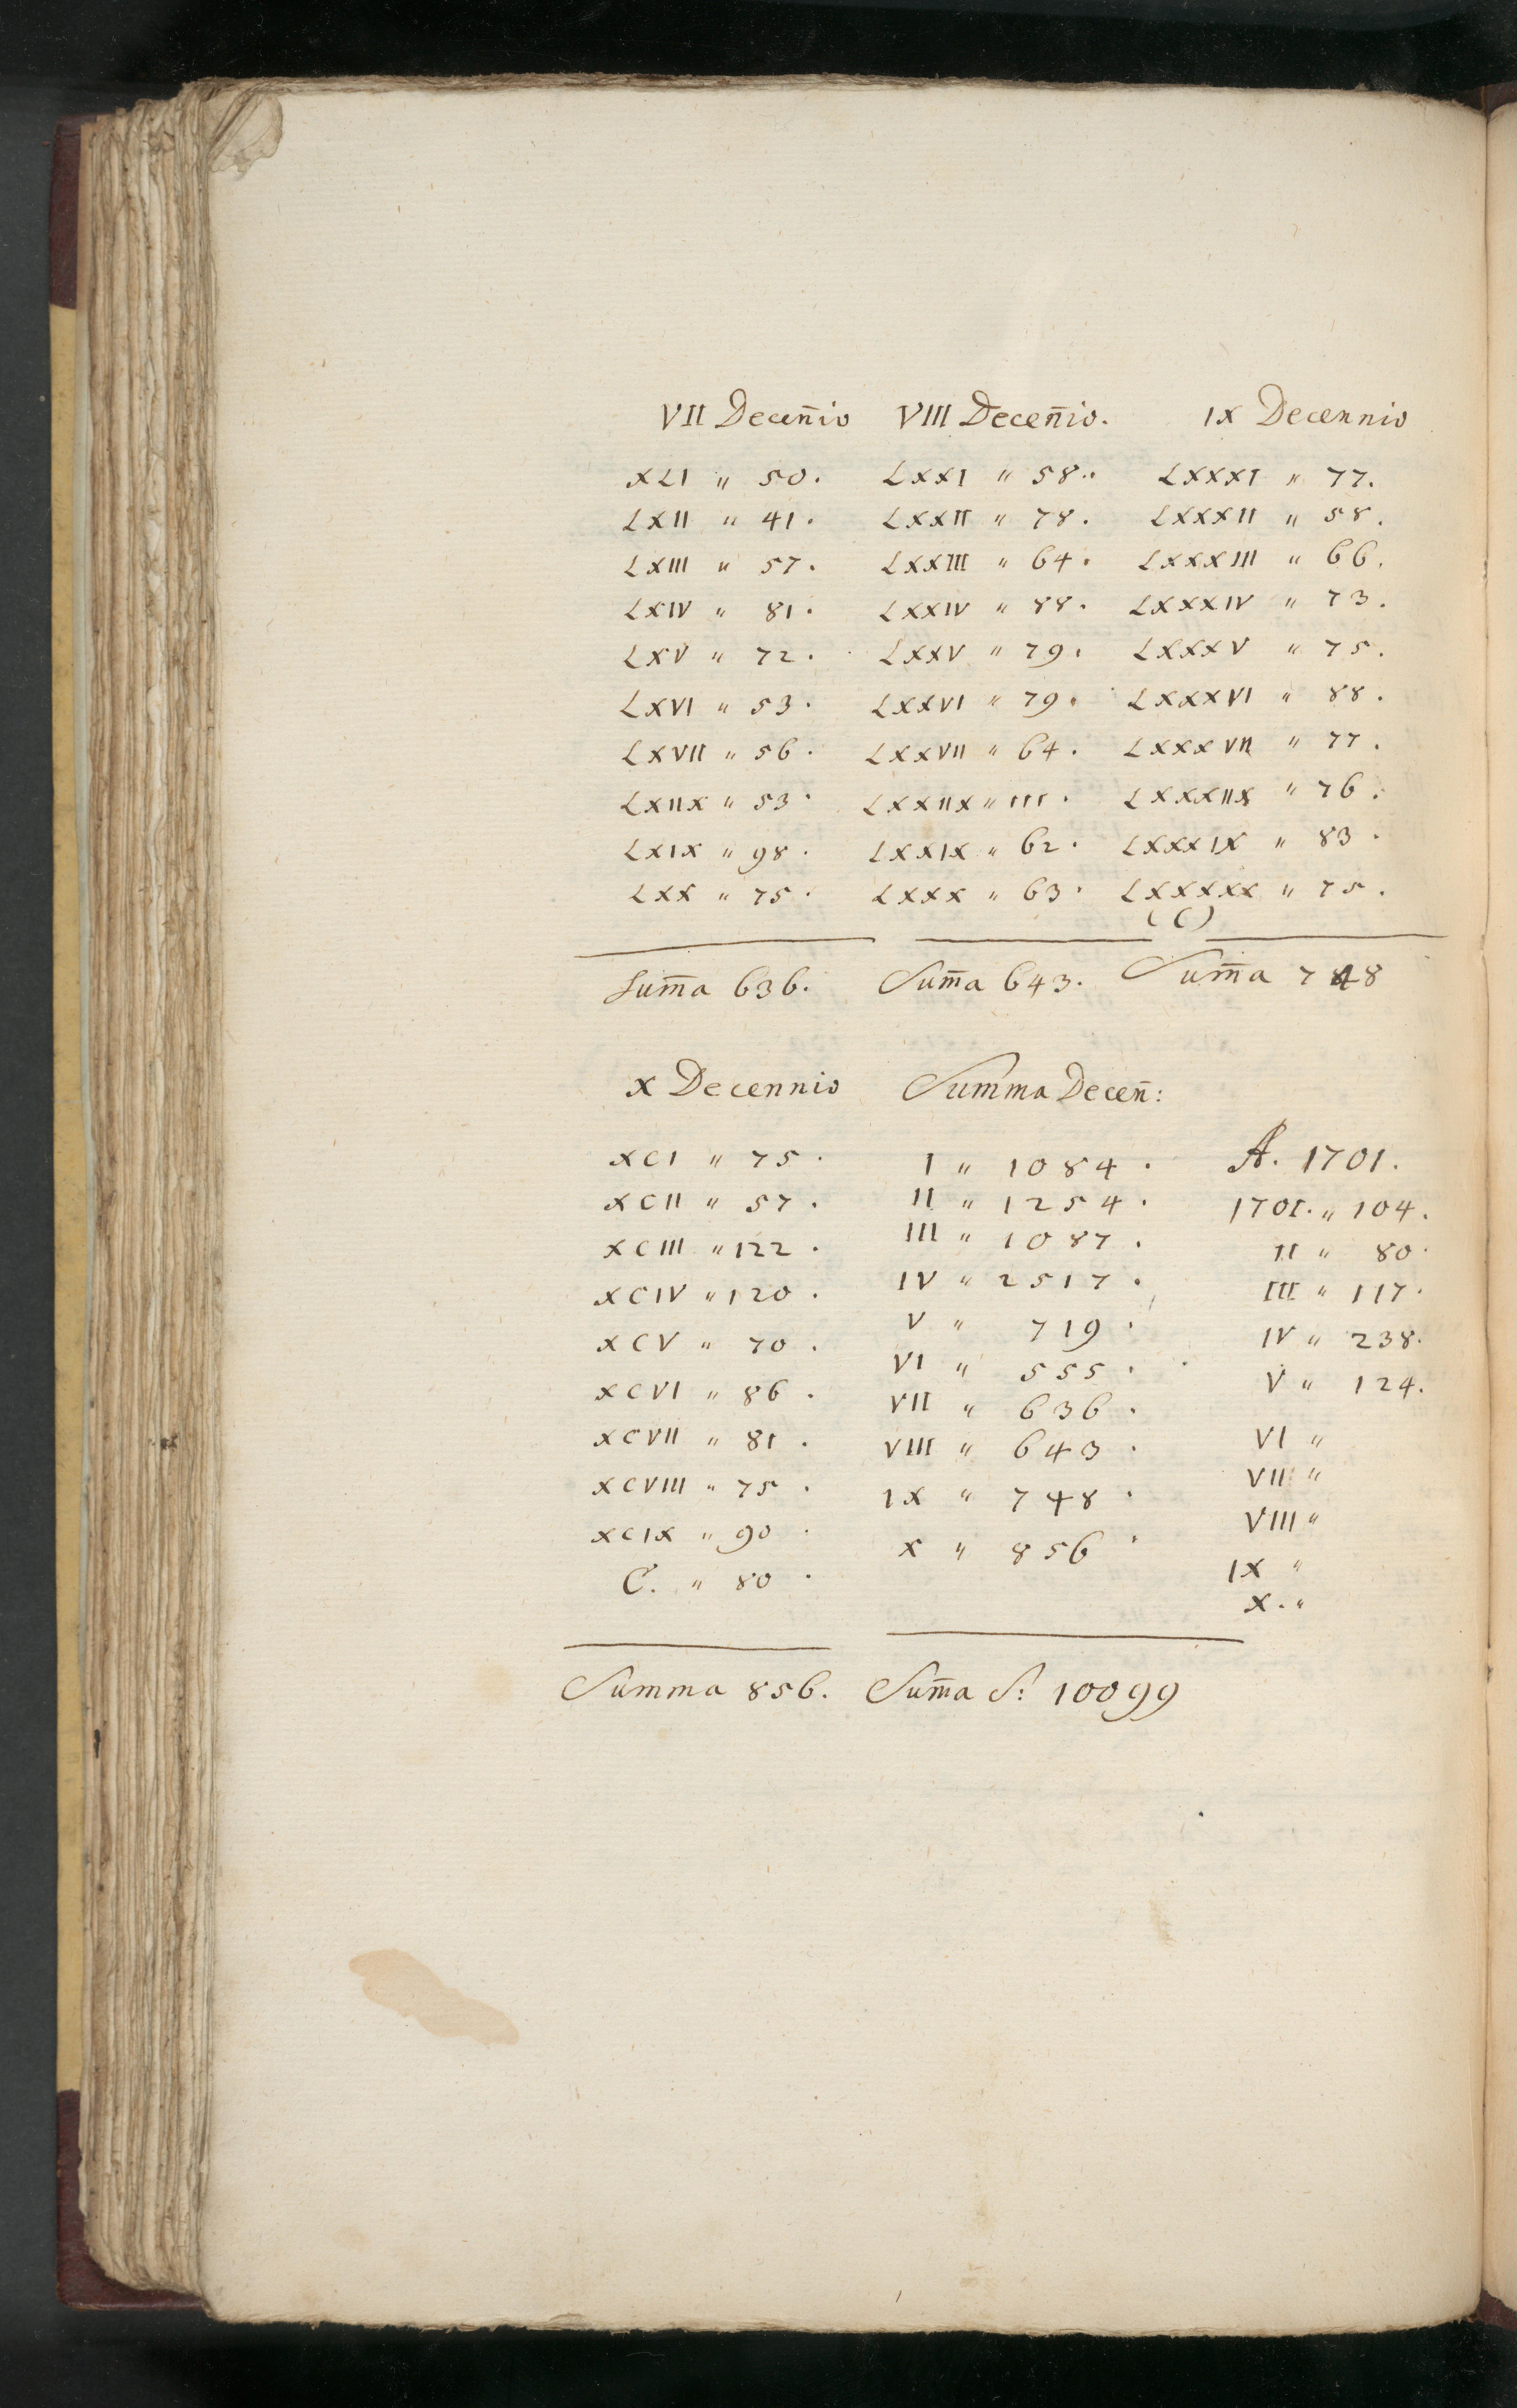 VII Deceñio VIII Deceñio. IX Decennio
XLI " 50. LXXI " 58.. LXXXI " 77.
LXII " 41. LXXII " 78. LXXXII " 58.
LXIII " 57. LXXIII " 64. LXXXIII " 66.
LXIV " 81. LXXIV " 88. LXXXIV " 73.
LXV " 72. LXXV " 79. LXXXV " 75.
LXVI " 53. LXXVI " 79. LXXXVI " 88.
LXVII " 56. LXXVII " 64. LXXXVII " 77.
LXIIX " 53. LXXIIX " 111. LXXXIIX " 76.
LXIX " 98. LXXIX " 62. LXXXIX " 83.
LXX " 75. LXXX " 63. LXXXXX " 75.
(C)
Sum̄a 636. Sum̄a 643. Sum̄a 748
X Decennio Summa Deceñ:
XCI " 75. I " 1084. A. 1701.
XCII " 57. II " 1254. 1701. " 104.
XCIII " 122. III " 1087. II " 80.
XCIV " 120. IV " 2517. III " 117.
XCV " 70. V " 719. IV " 238.
XCVI " 86. VI " 555. V " 124.
XCVII " 81. VII " 636. VI "
XCVIII " 75. VIII " 643. VII "
XCIX " 90. IX " 748. VIII "
C. " 80. X " 856. IX "
X. "
Summa 856. Sum̄a S: 10099